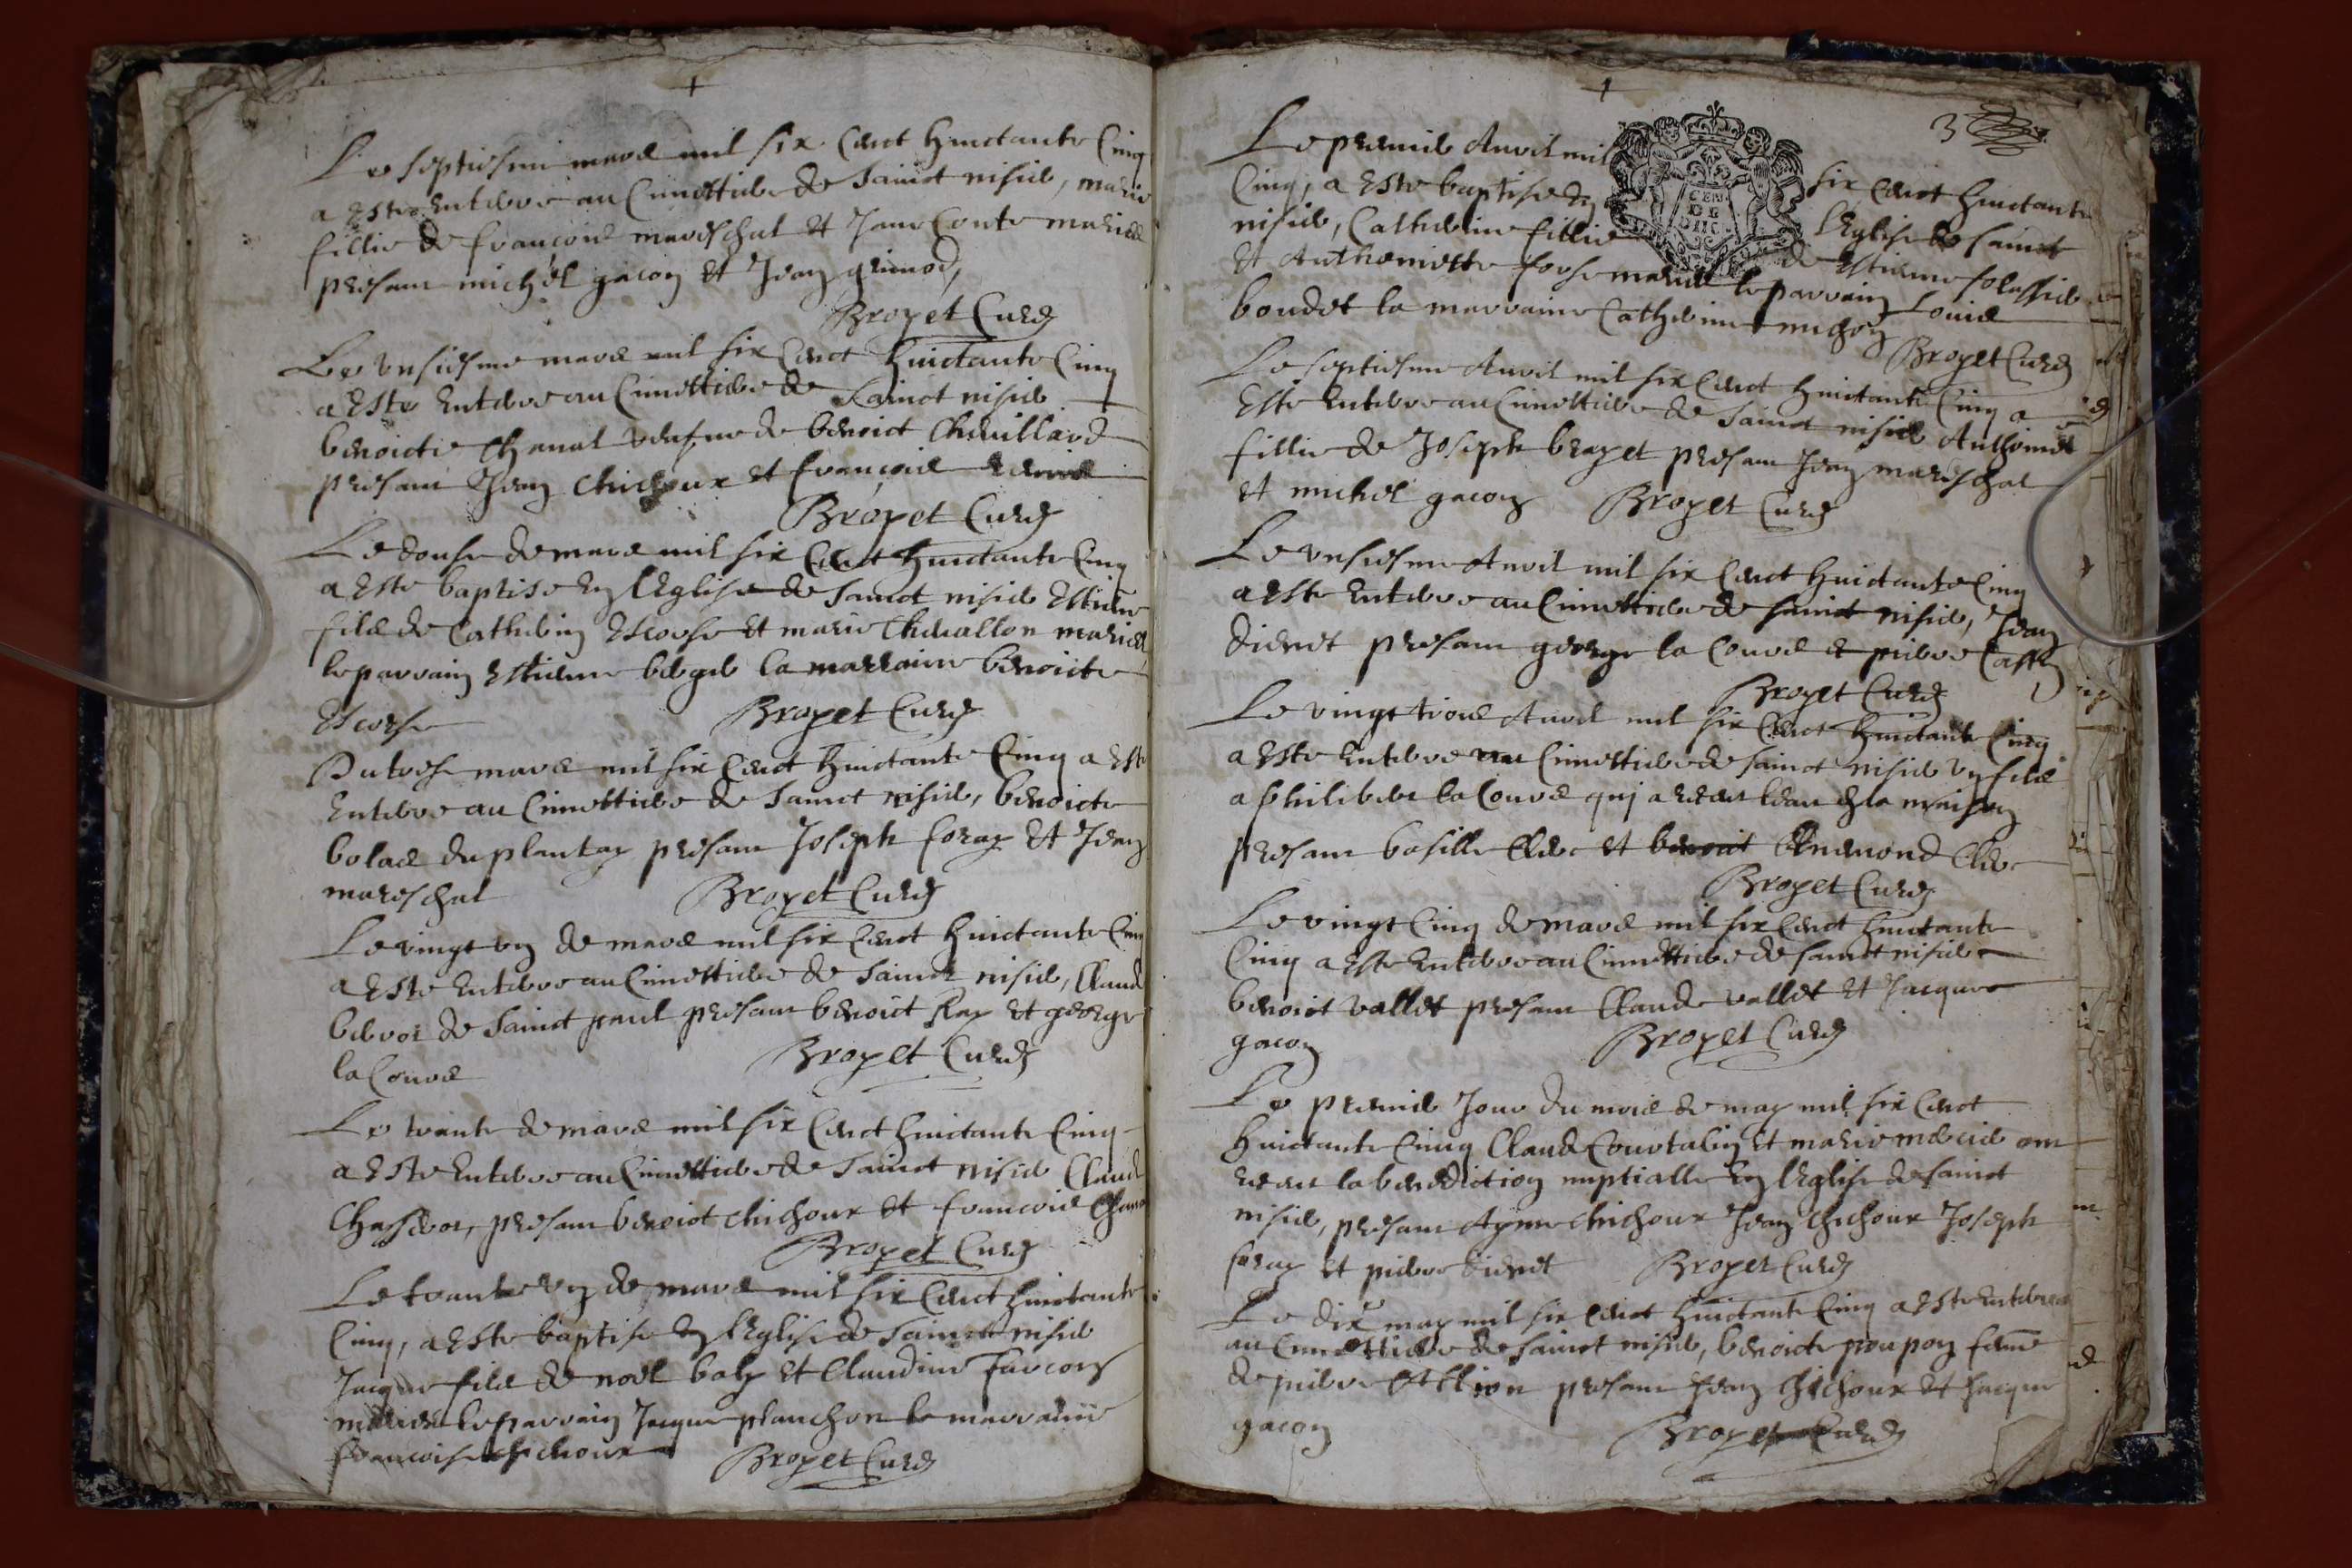 Le septiesme mars mil six cent huictante cinq
a este enterre au cimettiere de sainct nisier, marie
fillie de francois mareschal et Jane Conte mariés
presant michel gacon et Jean grimod,
Broyet Curé
Le unsiesme mars mil six cent huictante cinq
a este enterre au cimettiere de sainct nisier
benoicte chanal veufve de benoict chevillard
presant Jean chichoux et francois
Broyet Curé
Le douse de mars mil six cent huictante cinq
a este baptise en lEglise de sainct nisier Estiene
fils de Catherin Escorse et marie chevallon mariés
le parrain Estiene berger la marraine benoicte
Escorse Broyet Curé
Du trese mars mil six cent huictante cinq a este
enterre au cimettiere de sainct nisier, benoicte
bolas du plantay presant Joseph foray et Jean
mareschal Broyet Curé
Le vingt un de mars mil six cent huictante cinq
a este enterre au cimettiere de sainct nisier, Claud
de sainct paul presant benoict Ray et george
la Cours Broyet Curé
Le trante de mars mil six cent huictante cinq
a este enterre au cimettiere de sainct nisier Claude
presant benoict chichoux et francois
Broyet Curé
Le trante un de mars mil six cent huictante
cinq, a este baptise en lEglise de sainct nisier
Jacque fils de noel baly et Claudine farcon
mariés le parrain Jacque planchon la marraine
francoise chichoux Broyet Curé
3
Le premier Avril mil six cent huictante
cinq, a este baptise en lEglise de sainct
nisier, Catherine fillie de Estiene solassier
et Anthoniette mariés le parrain Louis
boudet la marraine Catherine michon
Broyet Curé
Le septiesme Avril mil six cent huictante cinq a
este enterre au cimettiere de sainct nisier
fillie de Joseph brayet presant Jean mareschal
et michel gacon Broyet Curé
Le unsiesme Avril mil six cent huictante cinq
a este enterre au cimettiere de sainct nisier, Jean
dienet presant george la Cours et pierre
Broyet Curé
Le vingt trois Avril mil six cent huictante cinq
a este enterre au cimettiere de sainct nisier un fils
a philibert la Cours qui a receut leau en la maison
presant basille Clerc et Ennemond Clerc
Broyet Curé
Le vingt cinq de mars mil six cent huictante
cinq a este enterre au cimettiere de sainct nisier
benoict vallet presant Claude vallet et Jacques
gacon Broyet Curé
Le premier Jour du mois de may mil six cent
huictante cinq Claude Courtalin et marie mercier ont
receut la benediction nuptialle en lEglise de sainct
nisier, presant Ayme chichoux Jean chichoux Joseph
foray et pierre dienet Broyet Curé
Le dix may mil six cent huictante cinq a este enterree
au cimettiere de sainct nisier, benoicte poupon feme
de pierre presant Jean chichoux et Jacque
gacon Broyet Curé